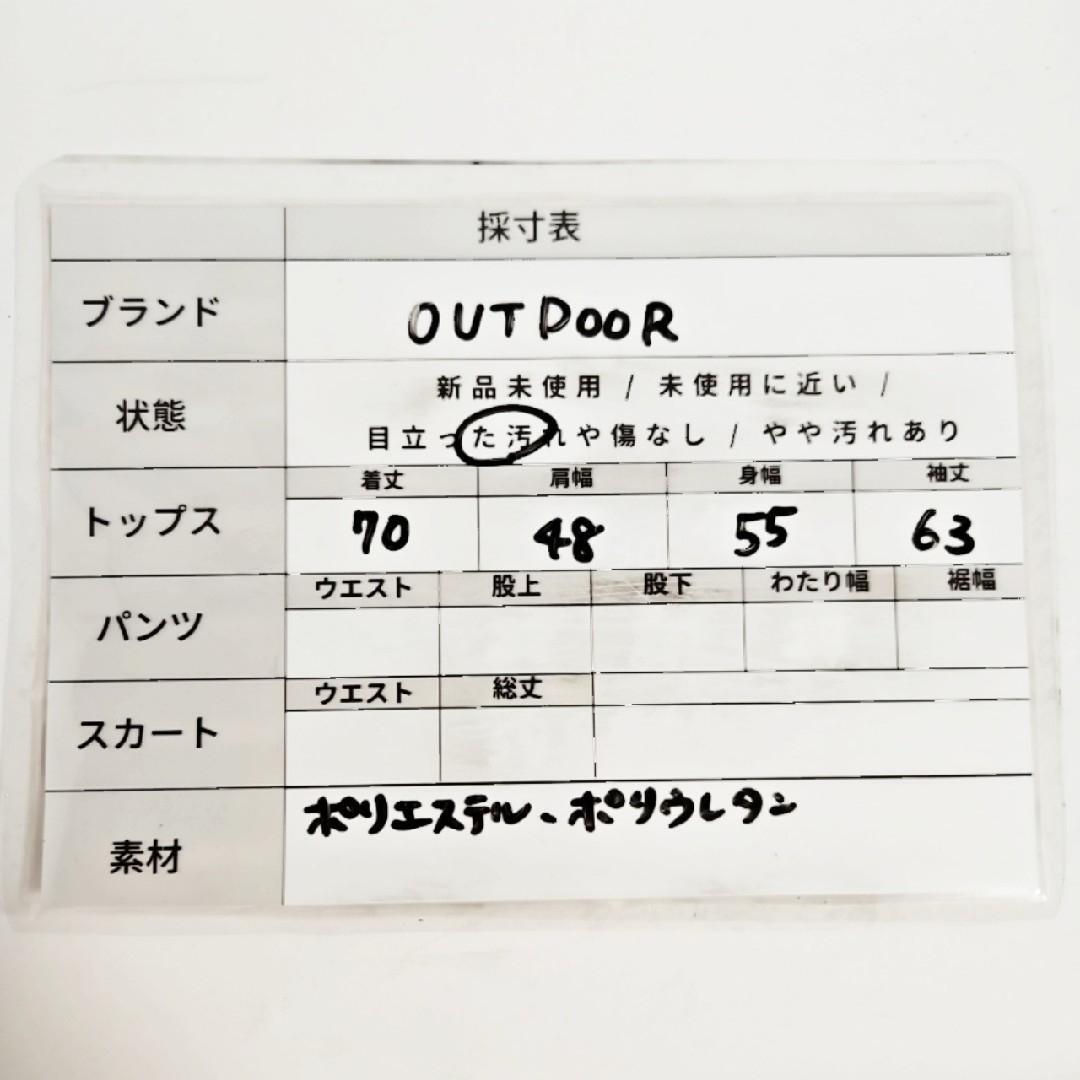 採寸表
ブランド OUTDOOR
状態 新品未使用 / 未使用に近い /
目立った汚れや傷なし / やや汚れあり
トップス 着丈 肩幅 身幅 袖丈
70 48 55 63
パンツ ウエスト 股上 股下 わたり幅 裾幅
スカート ウエスト 総丈
素材 ポリエステル、ポリウレタン